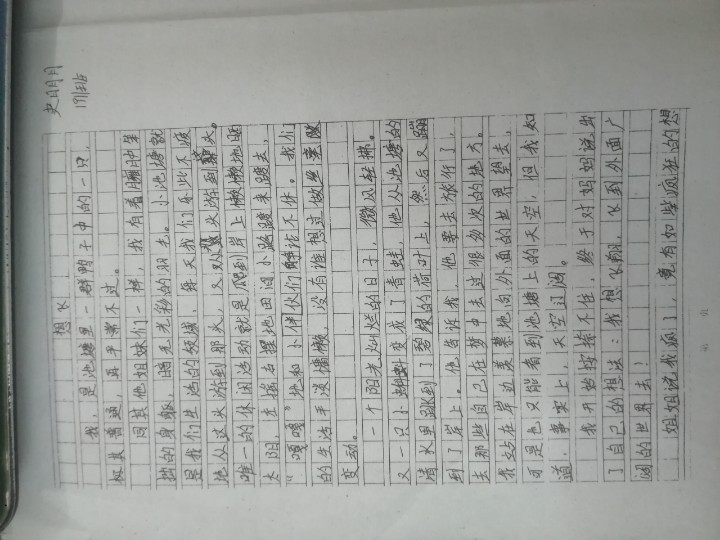 史明月
1911班
想飞
我，是池塘里一群鸭子中的一只，
极其普通，再平常不过。
同其他姐妹们一样，我有着臃肿笨
拙的身躯，暗无光彩的羽毛。小池塘就
是我们生活的牧场，每天我们乐此不疲
地从这头游到那头，又从那头游到这头。
唯一的休闲活动就是爬到岸上懒懒地晒
太阳，左摇右摆地田间小路踱来踱去，
“嘎嘎”地和小伴伙们争论不休。我们
的生活平淡慵懒，没有谁想过做出来改
变动。
一个阳光灿烂的日子，微风轻拂。
又一只小蝌蚪变成了青蛙，他从池塘的
清水里跳到了碧绿的荷叶上，然后又蹦
到了岸上。他告诉我，他要去旅行了，
去那些自己在梦中去过很多次的地方。
我站在岸边羡慕地向外面的世界望去，
可是也只能看到池塘上的天空，但我知
道，事实上，天空辽阔。
我开始按捺不住，终于对妈妈说出
了自己的想法：我想飞翔，飞到外面广
阔的世界去！
姐姐说我疯了，竟有如此疯狂的想